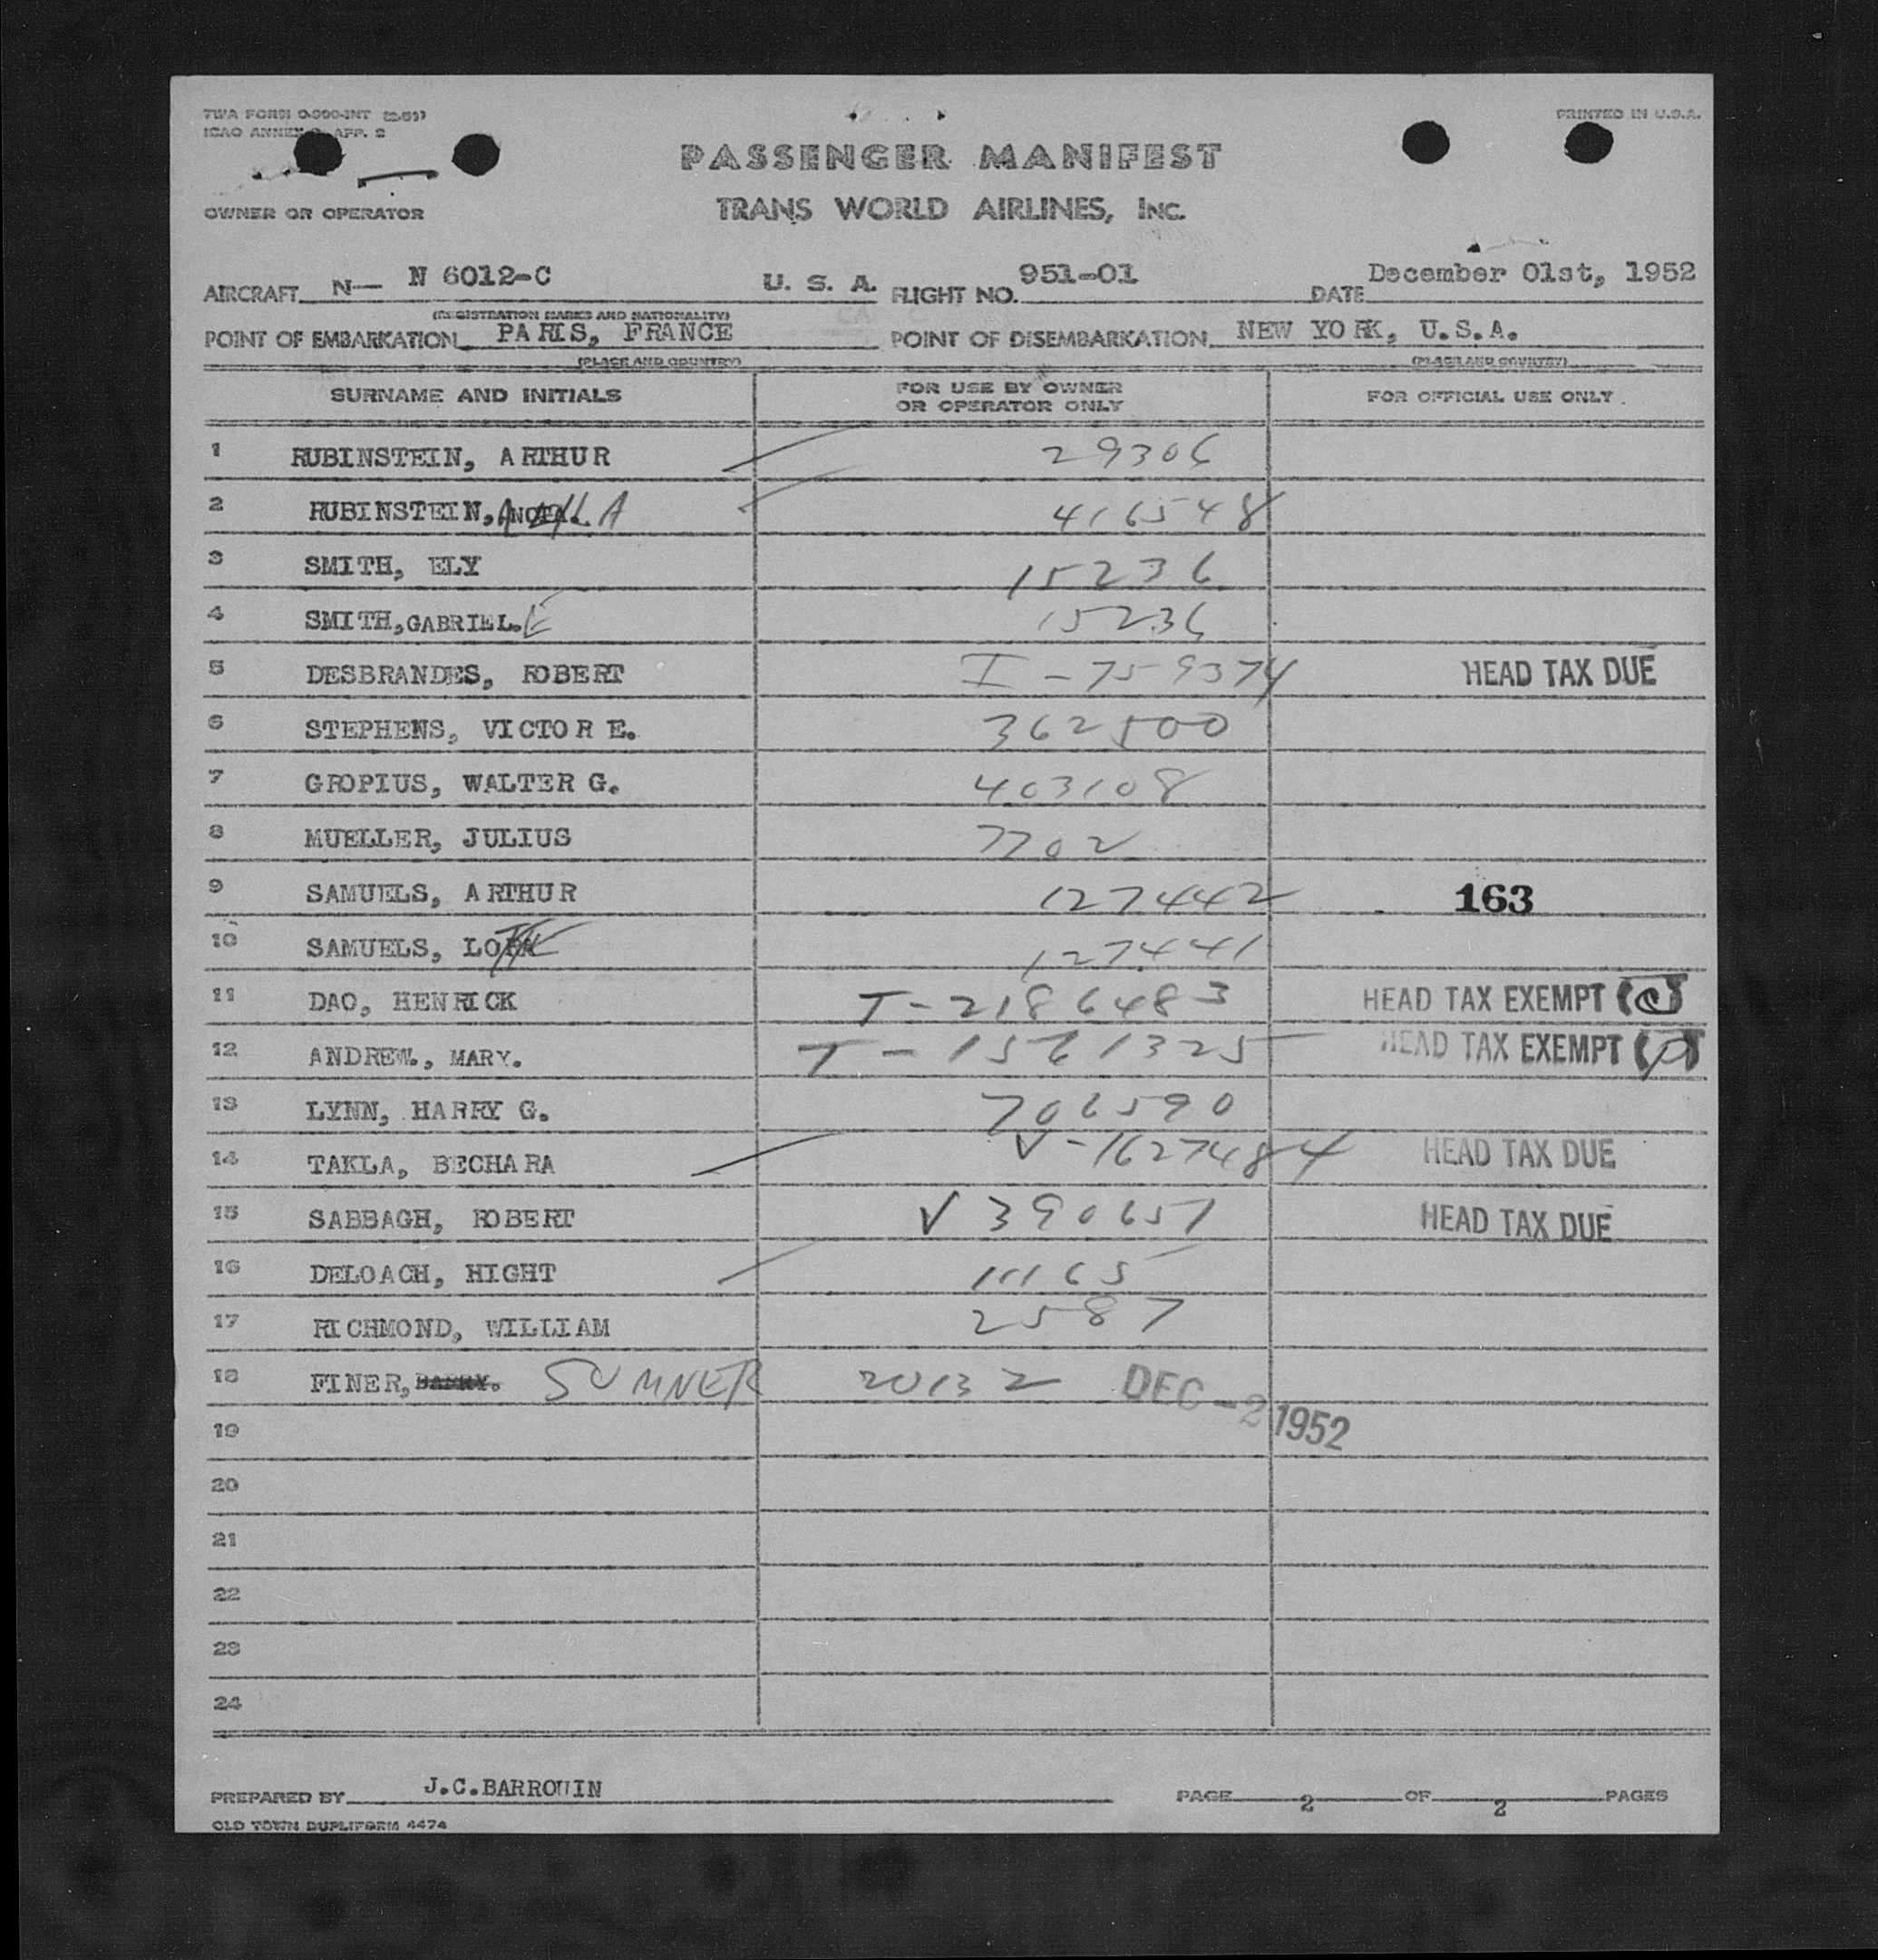 TWA FORM O-300-INT (2-51)
ICAO ANNEX 9, APP. 2
PRINTED IN U.S.A.
PASSENGER MANIFEST
OWNER OR OPERATOR
TRANS WORLD AIRLINES, INC.
AIRCRAFT N— N 6012-C U. S. A. FLIGHT NO. 951-01 DATE December 01st, 1952
(REGISTRATION MARKS AND NATIONALITY)
POINT OF EMBARKATION PARIS, FRANCE POINT OF DISEMBARKATION NEW YORK, U.S.A.
(PLACE AND COUNTRY) (PLACE AND COUNTRY)
SURNAME AND INITIALS FOR USE BY OWNER OR OPERATOR ONLY FOR OFFICIAL USE ONLY
1 RUBINSTEIN, ARTHUR 29306
2 RUBINSTEIN, 416548
3 SMITH, ELY 15236
4 SMITH, GABRIEL.E 15236
5 DESBRANDES, ROBERT I-759374 HEAD TAX DUE
6 STEPHENS, VICTOR E. 362500
7 GROPIUS, WALTER G. 403108
8 MUELLER, JULIUS 7702
9 SAMUELS, ARTHUR 127442 163
10 SAMUELS, 127441
11 DAO, HENRICK T-2186483 HEAD TAX EXEMPT
12 ANDREW., MARY. T-1561325 HEAD TAX EXEMPT
13 LYNN, HARRY G. 706590
14 TAKLA, BECHARA V-1627484 HEAD TAX DUE
15 SABBAGH, ROBERT V 390651 HEAD TAX DUE
16 DELOACH, HIGHT 111165
17 RICHMOND, WILLIAM 2587
18 FINER, BARRY. SUMNER 20132 DEC -2 1952
19
20
21
22
23
24
PREPARED BY J.C.BARROUIN PAGE 2 OF 2 PAGES
OLD TOWN DUPLIFORM 4474